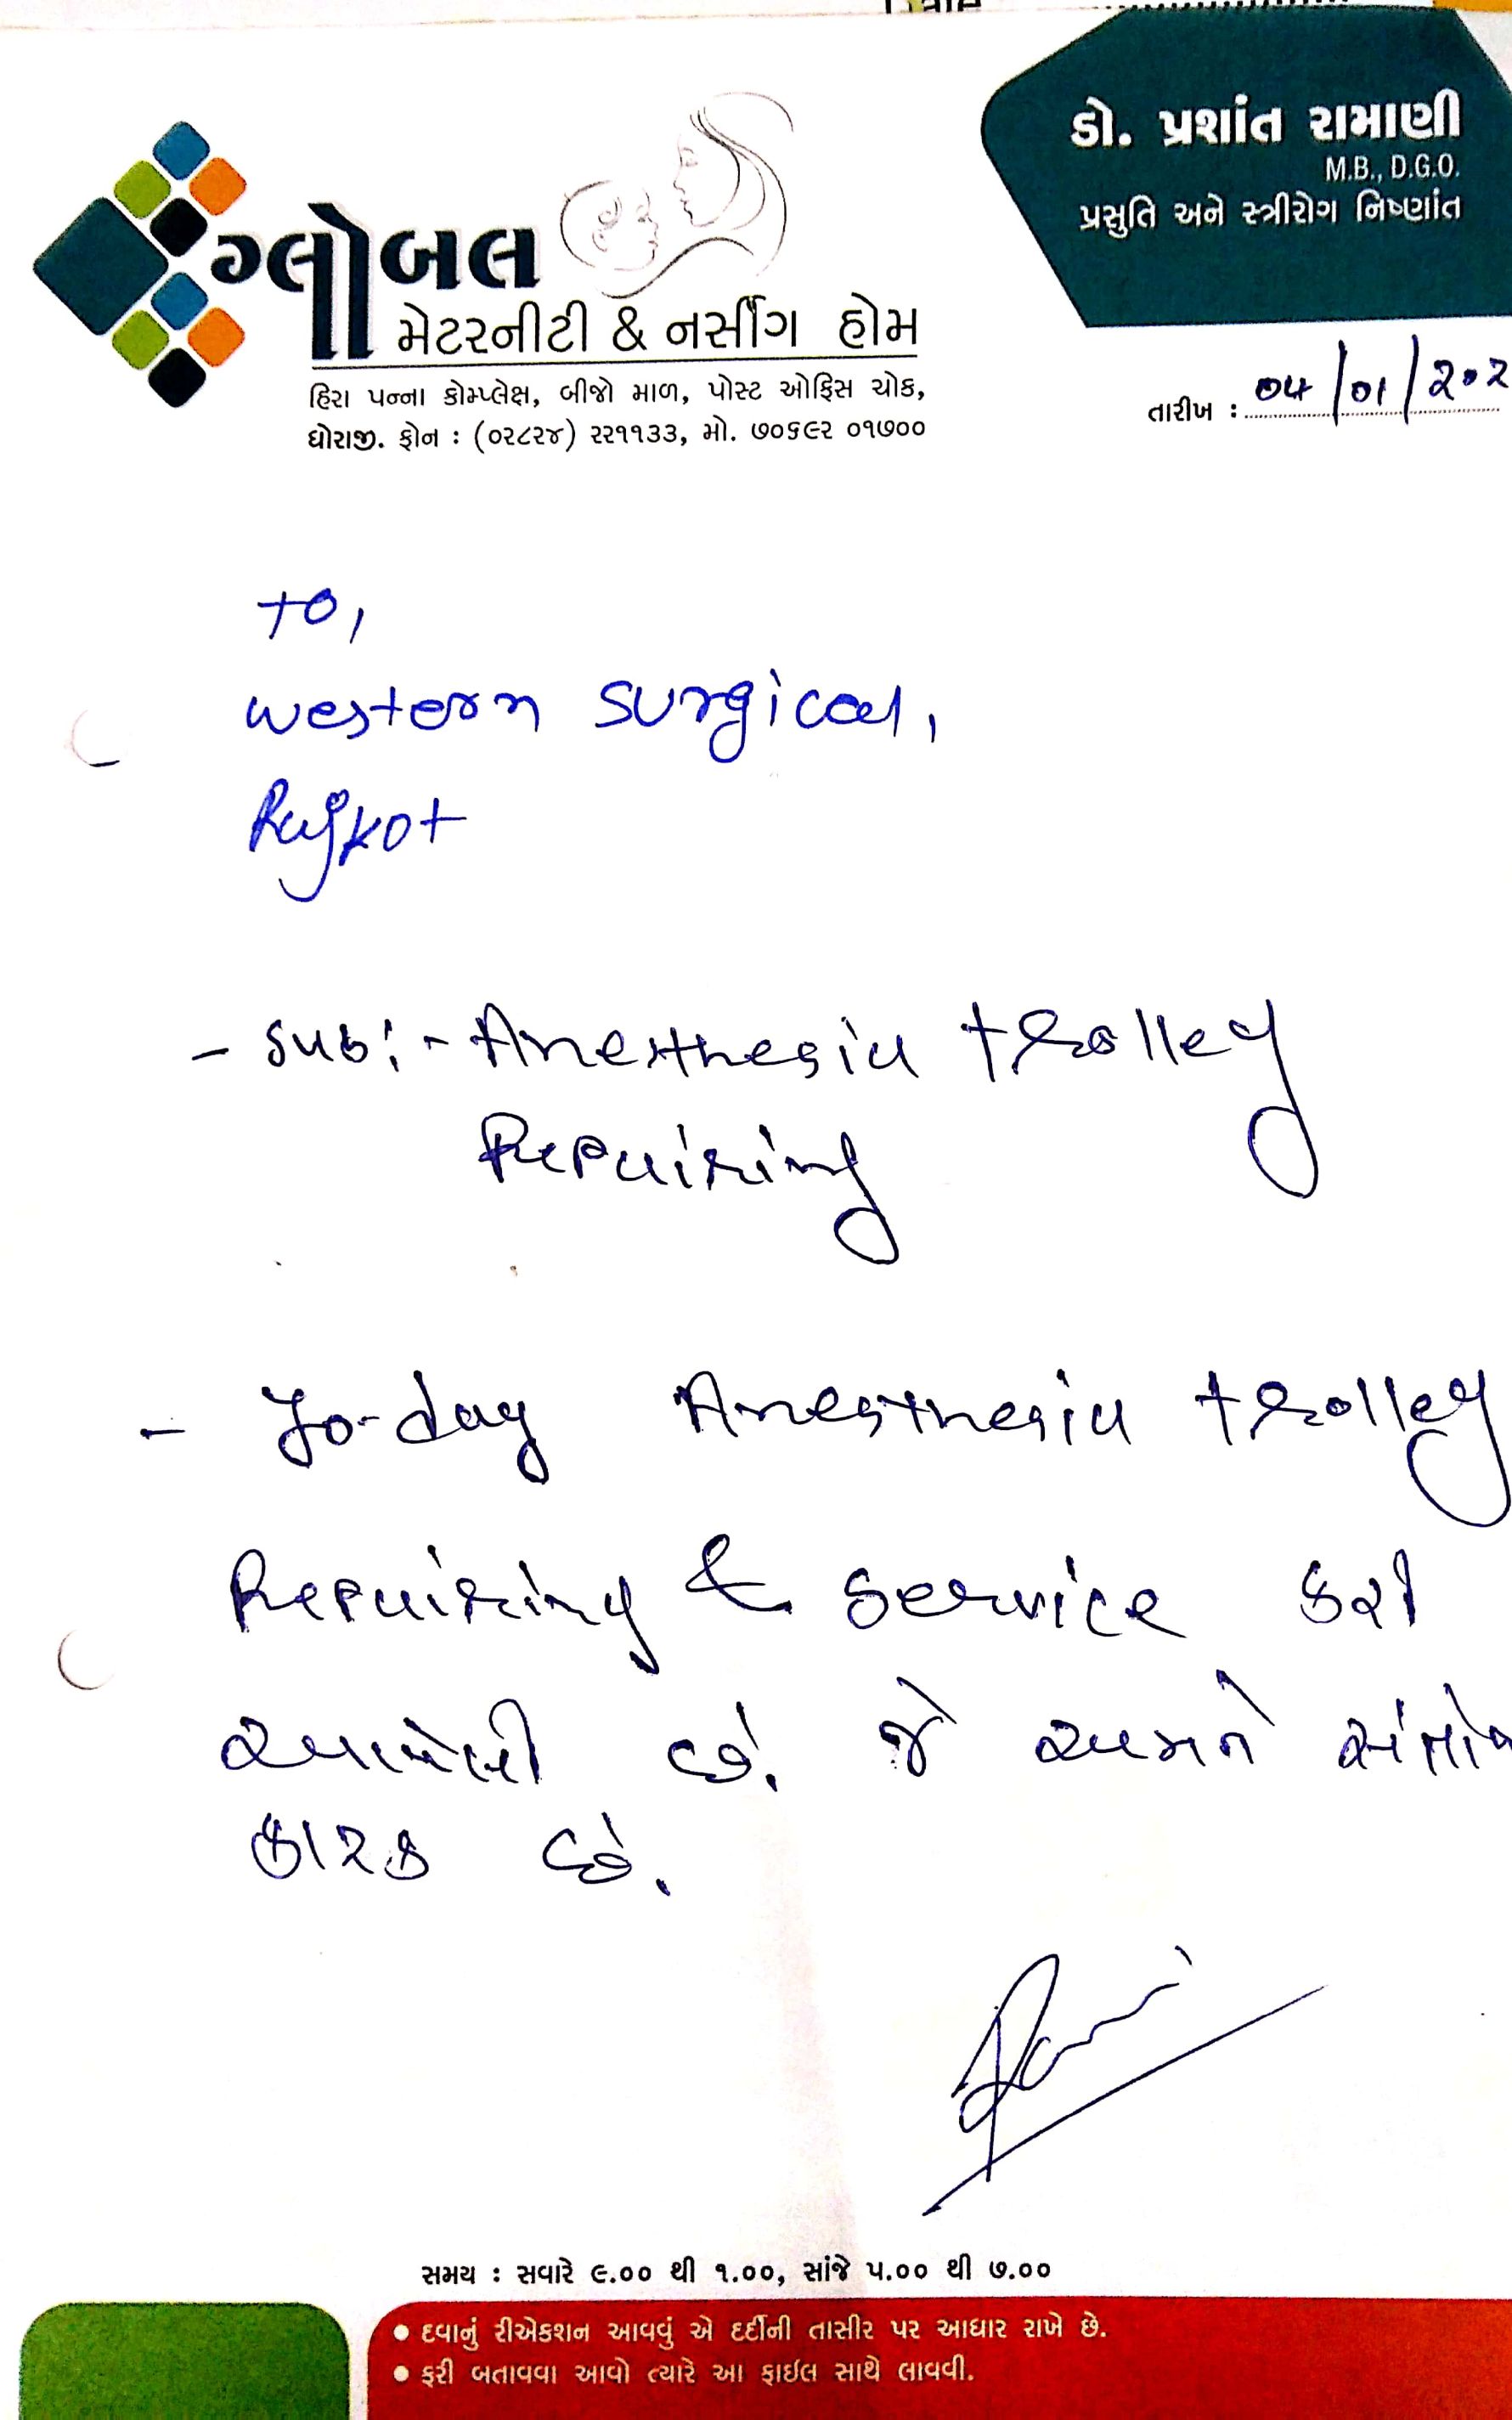 Date
ડો. પ્રશાંત રામાણી
M.B., D.G.O.
પ્રસુતિ અને સ્ત્રીરોગ નિષ્ણાંત
ગ્લોબલ
મેટરનીટી & નર્સીંગ હોમ
હિરા પન્ના કોમ્પ્લેક્ષ, બીજો માળ, પોસ્ટ ઓફિસ ચોક,
ધોરાજી. ફોન : (૦૨૮૨૪) ૨૨૧૧૩૩, મો. ૭૦૬૯૨ ૦૧૭૦૦
તારીખ : ૦૫/૦૧/૨૦૨
TO,
Western Surgical,
Rajkot
- Sub:- Anesthesia trolley
Repairing
- To-day Anesthesia trolley
Repairing & Service કરી
આપેલી છે. જે અમને સંતોષ
કારક છે.
સમય : સવારે ૯.૦૦ થી ૧.૦૦, સાંજે ૫.૦૦ થી ૭.૦૦
• દવાનું રીએકશન આવવું એ દર્દીની તાસીર પર આધાર રાખે છે.
• ફરી બતાવવા આવો ત્યારે આ ફાઈલ સાથે લાવવી.